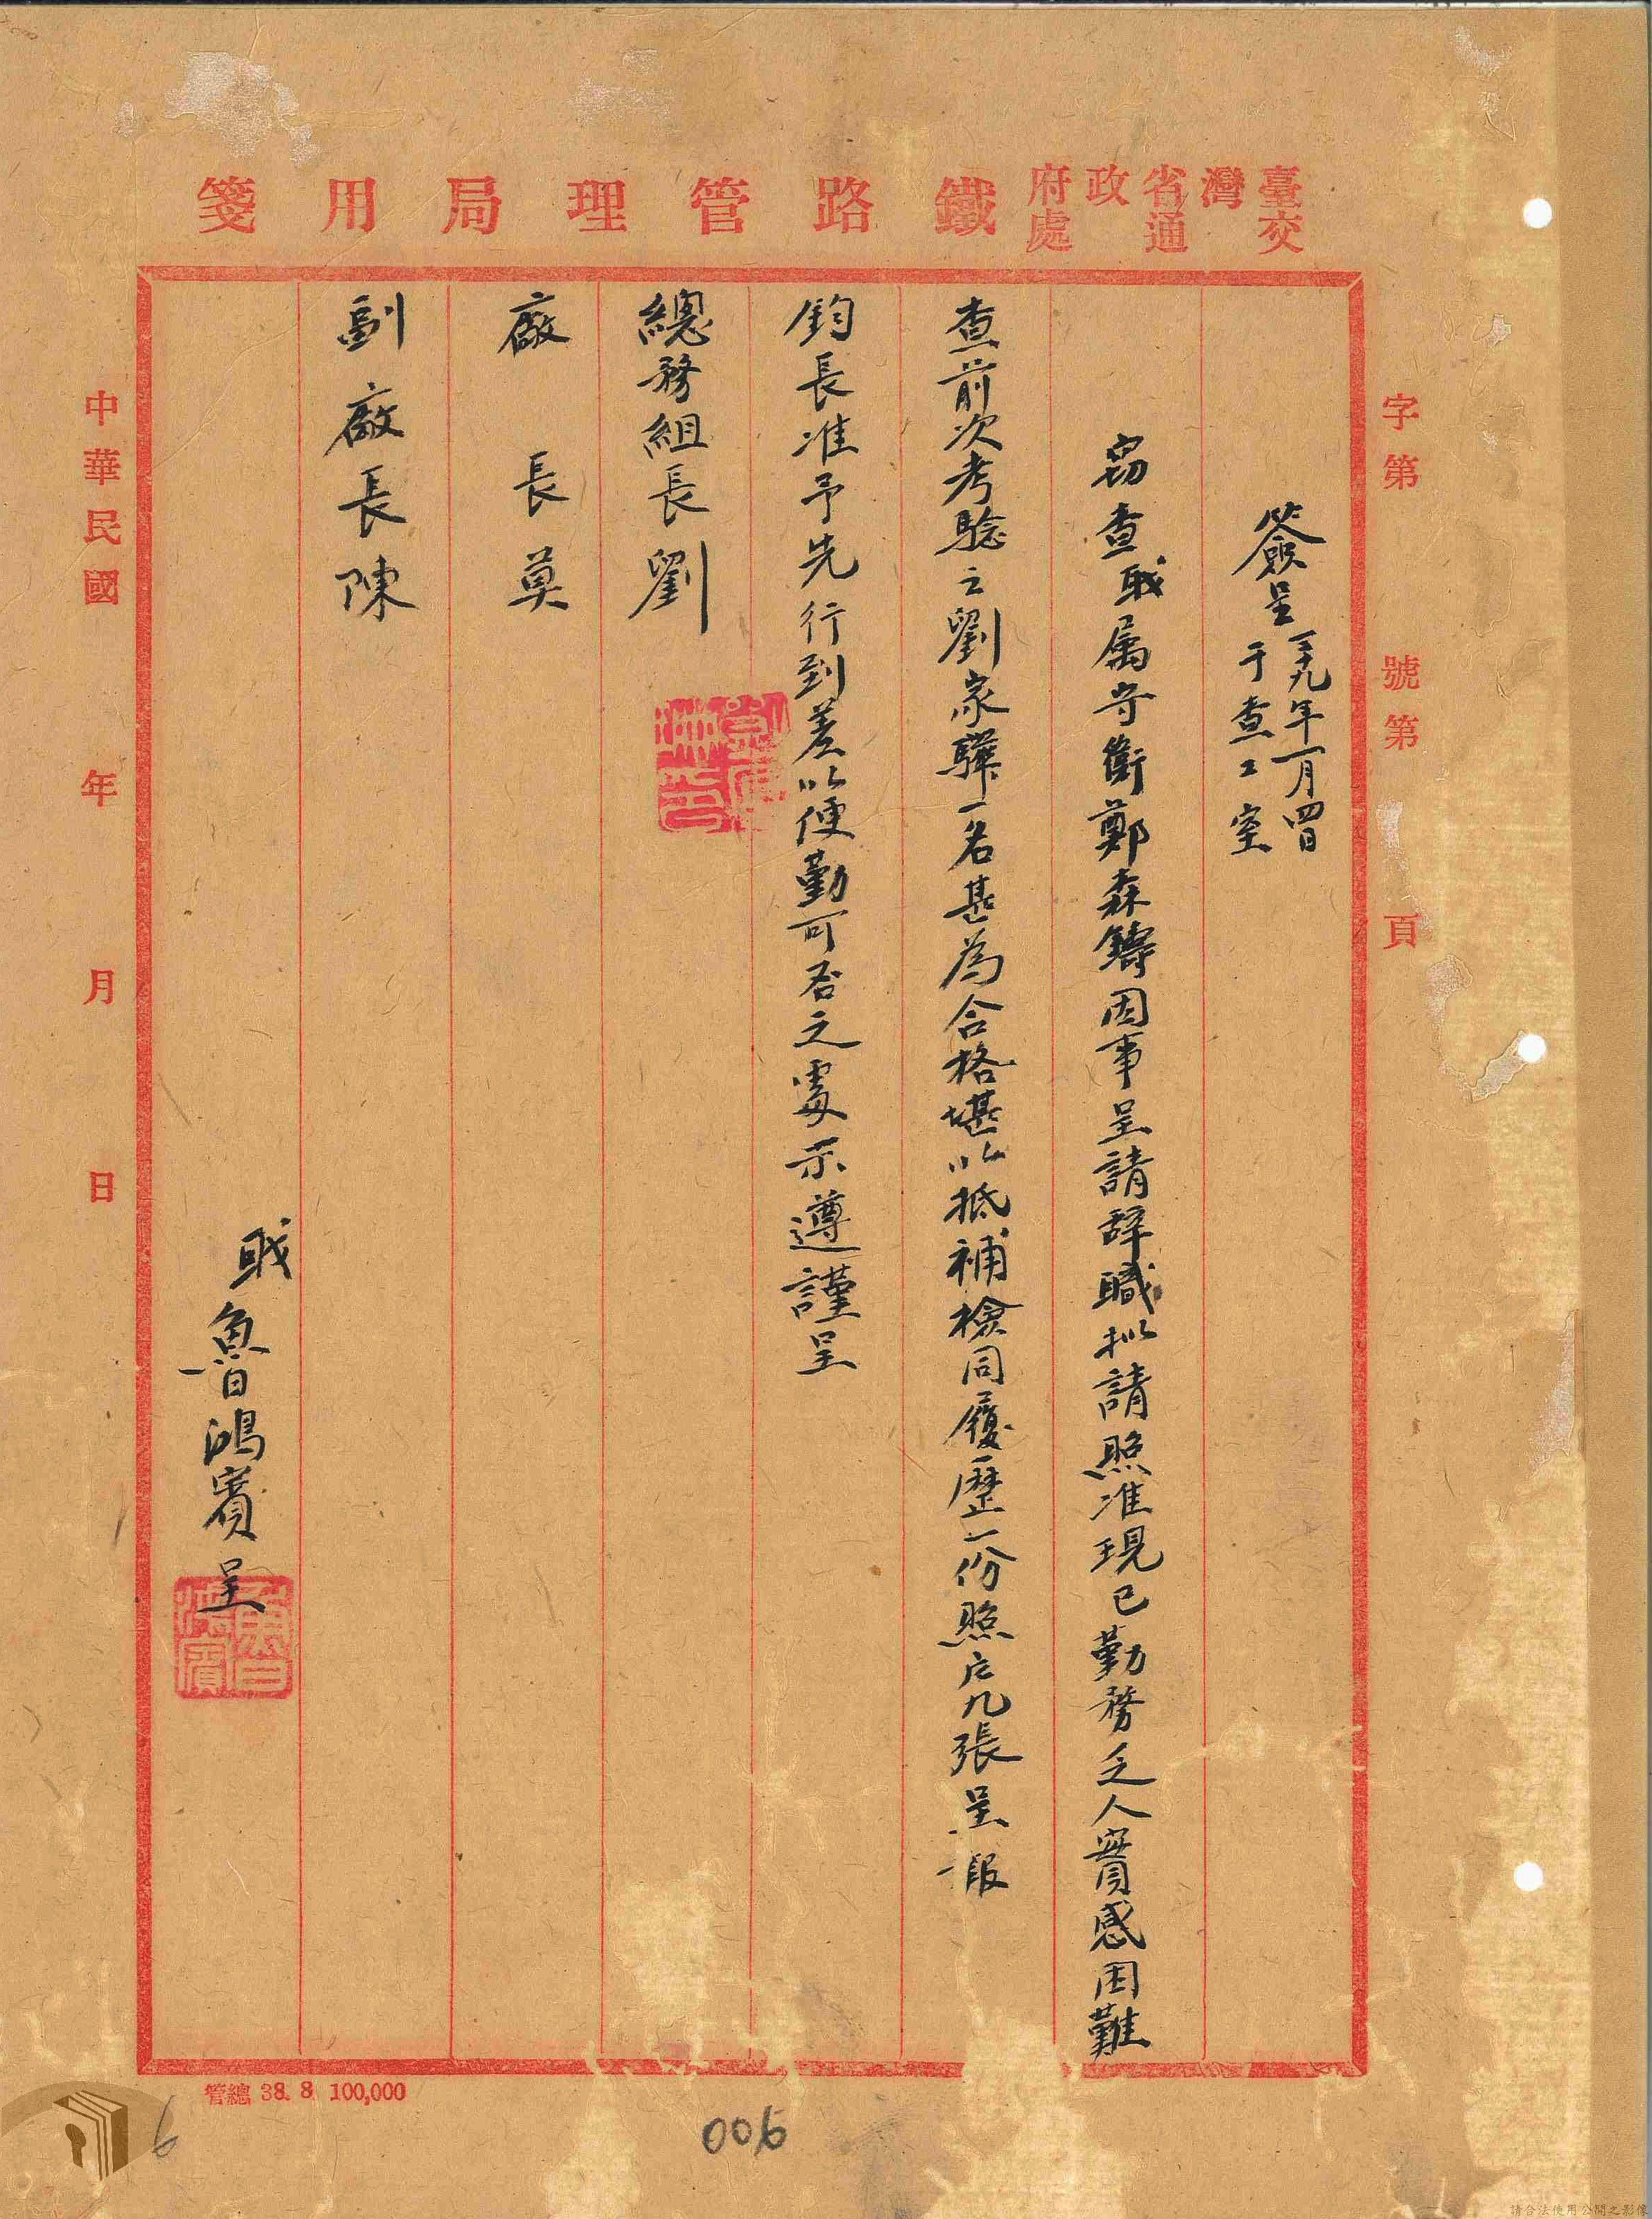 臺灣省政府交通處鐵路管理局用箋
字第　號第　頁
簽呈 三十九年一月四日
于查工室
竊查职属守衛鄭森鑄因事呈請辞職拟請照准現已勤務乏人實感困難
查前次考驗之劉家驊一名甚為合格堪以抵補檢同履歷一份照片九張呈報
鈞長准予先行到差以便勤可否之處示遵謹呈
總務組長劉
廠　長　莫
副廠長陳
职魯鴻賓呈
魯鴻賓
中華民國　年　月　日
管總 38. 8 100,000
006
6
請合法使用公開之影像